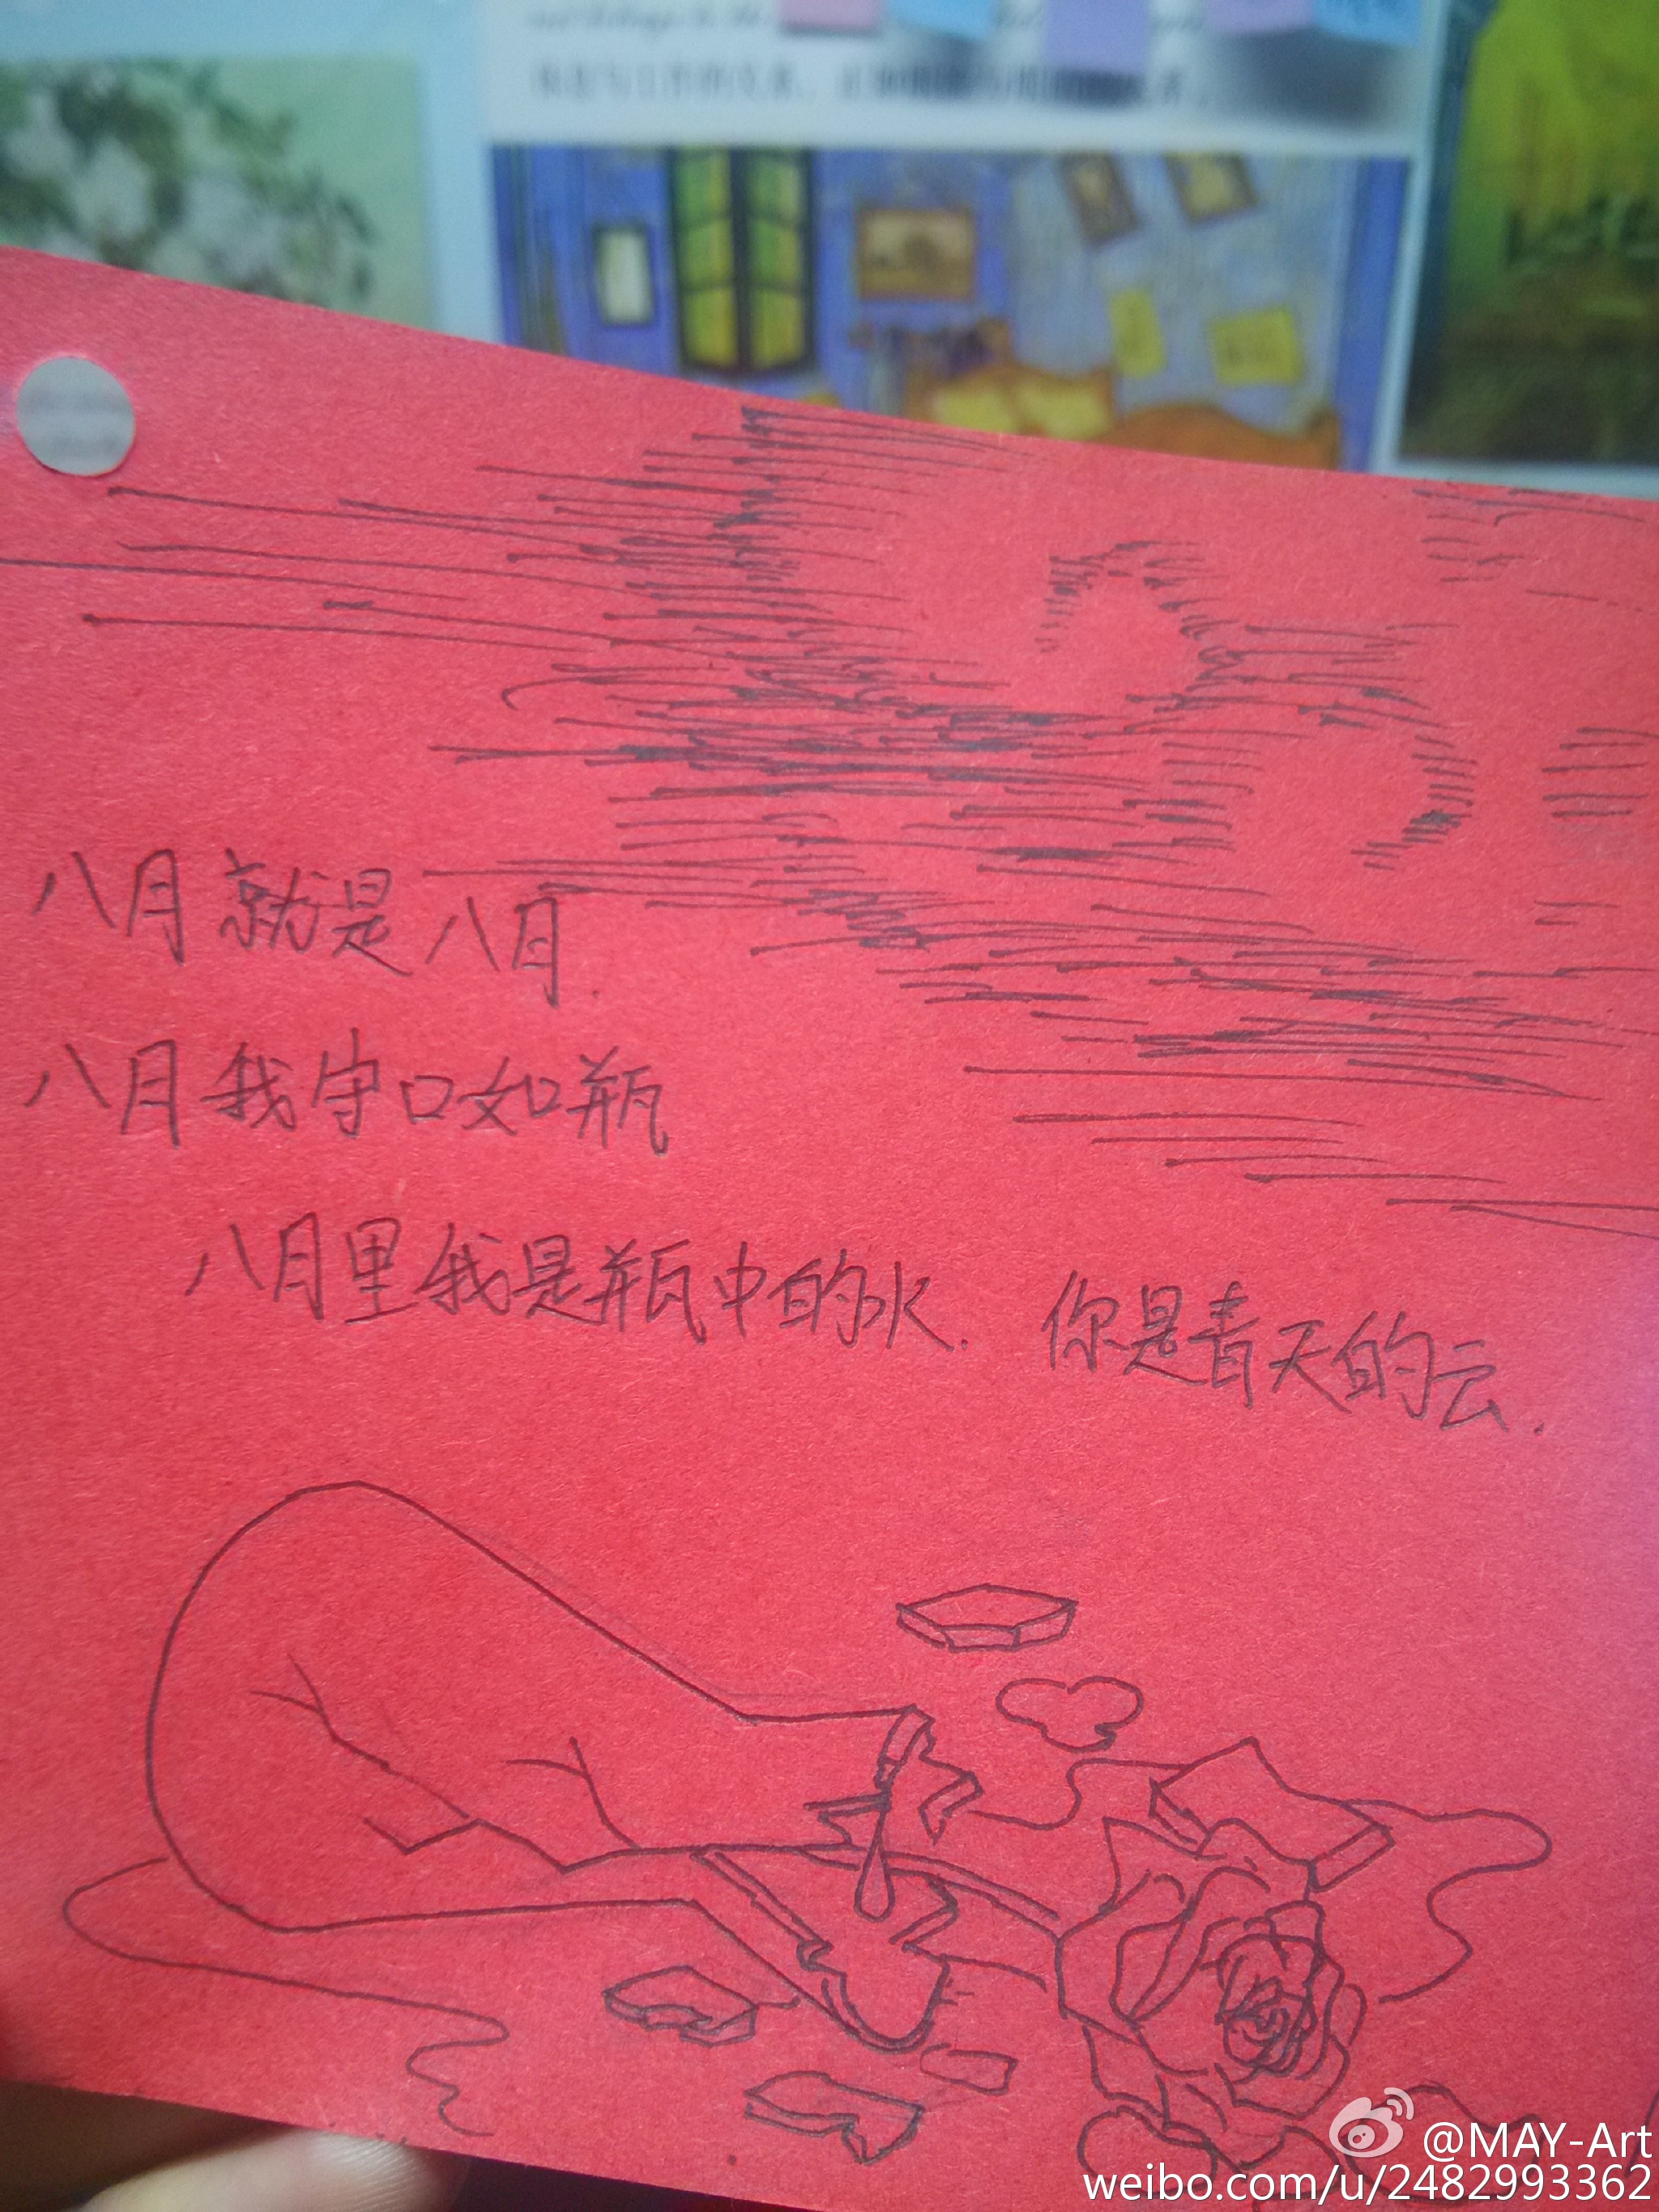 八月就是八月.
八月我守口如瓶
八月里我是瓶中的水. 你是青天的云.
@MAY-Art
weibo.com/u/2482993362